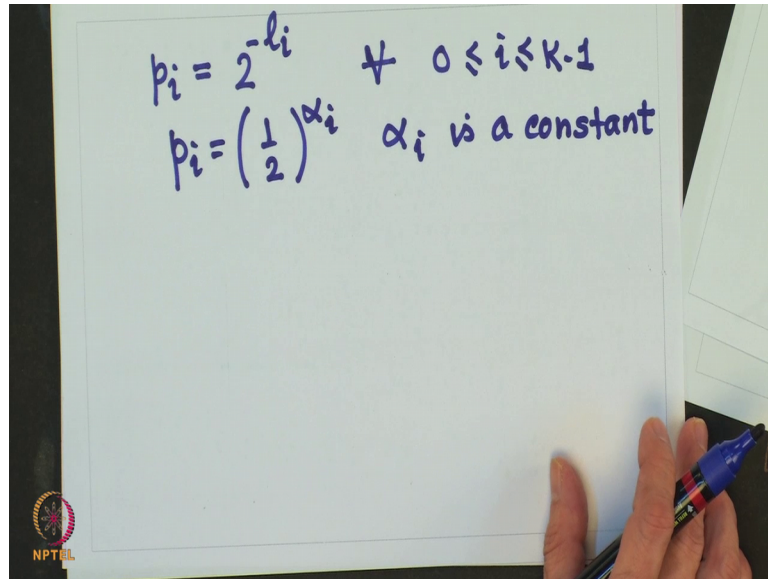 pᵢ = 2^{-lᵢ} ∀ 0 ≤ i ≤ K-1
pᵢ = (1/2)^{αᵢ} αᵢ is a constant
NPTEL